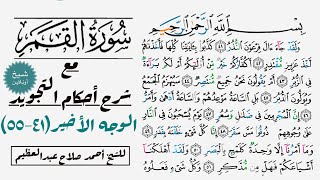 سُورَةُ القَمَرِ
مع
شرح أحكام التجويد
الوجه الأخير (٤١-٥٥)
للشيخ أحمد صلاح عبدالعظيم
شيخ
أونلاين
بِسْمِ اللَّهِ الرَّحْمَٰنِ الرَّحِيمِ
وَلَقَدْ جَاءَ آلَ فِرْعَوْنَ النُّذُرُ ٤١ كَذَّبُوا بِآيَاتِنَا كُلِّهَا فَأَخَذْنَاهُمْ
أَخْذَ عَزِيزٍ مُّقْتَدِرٍ ٤٢ أَكُفَّارُكُمْ خَيْرٌ مِّنْ أُولَٰئِكُمْ أَمْ لَكُم بَرَاءَةٌ
فِي الزُّبُرِ ٤٣ أَمْ يَقُولُونَ نَحْنُ جَمِيعٌ مُّنتَصِرٌ ٤٤ سَيُهْزَمُ الْجَمْعُ
وَيُوَلُّونَ الدُّبُرَ ٤٥ بَلِ السَّاعَةُ مَوْعِدُهُمْ وَالسَّاعَةُ أَدْهَىٰ وَأَمَرُّ
٤٦ إِنَّ الْمُجْرِمِينَ فِي ضَلَالٍ وَسُعُرٍ ٤٧ يَوْمَ يُسْحَبُونَ فِي النَّارِ
عَلَىٰ وُجُوهِهِمْ ذُوقُوا مَسَّ سَقَرَ ٤٨ إِنَّا كُلَّ شَيْءٍ خَلَقْنَاهُ بِقَدَرٍ
٤٩ وَمَا أَمْرُنَا إِلَّا وَاحِدَةٌ كَلَمْحٍ بِالْبَصَرِ ٥٠ وَلَقَدْ أَهْلَكْنَا
أَشْيَاعَكُمْ فَهَلْ مِن مُّدَّكِرٍ ٥١ وَكُلُّ شَيْءٍ فَعَلُوهُ